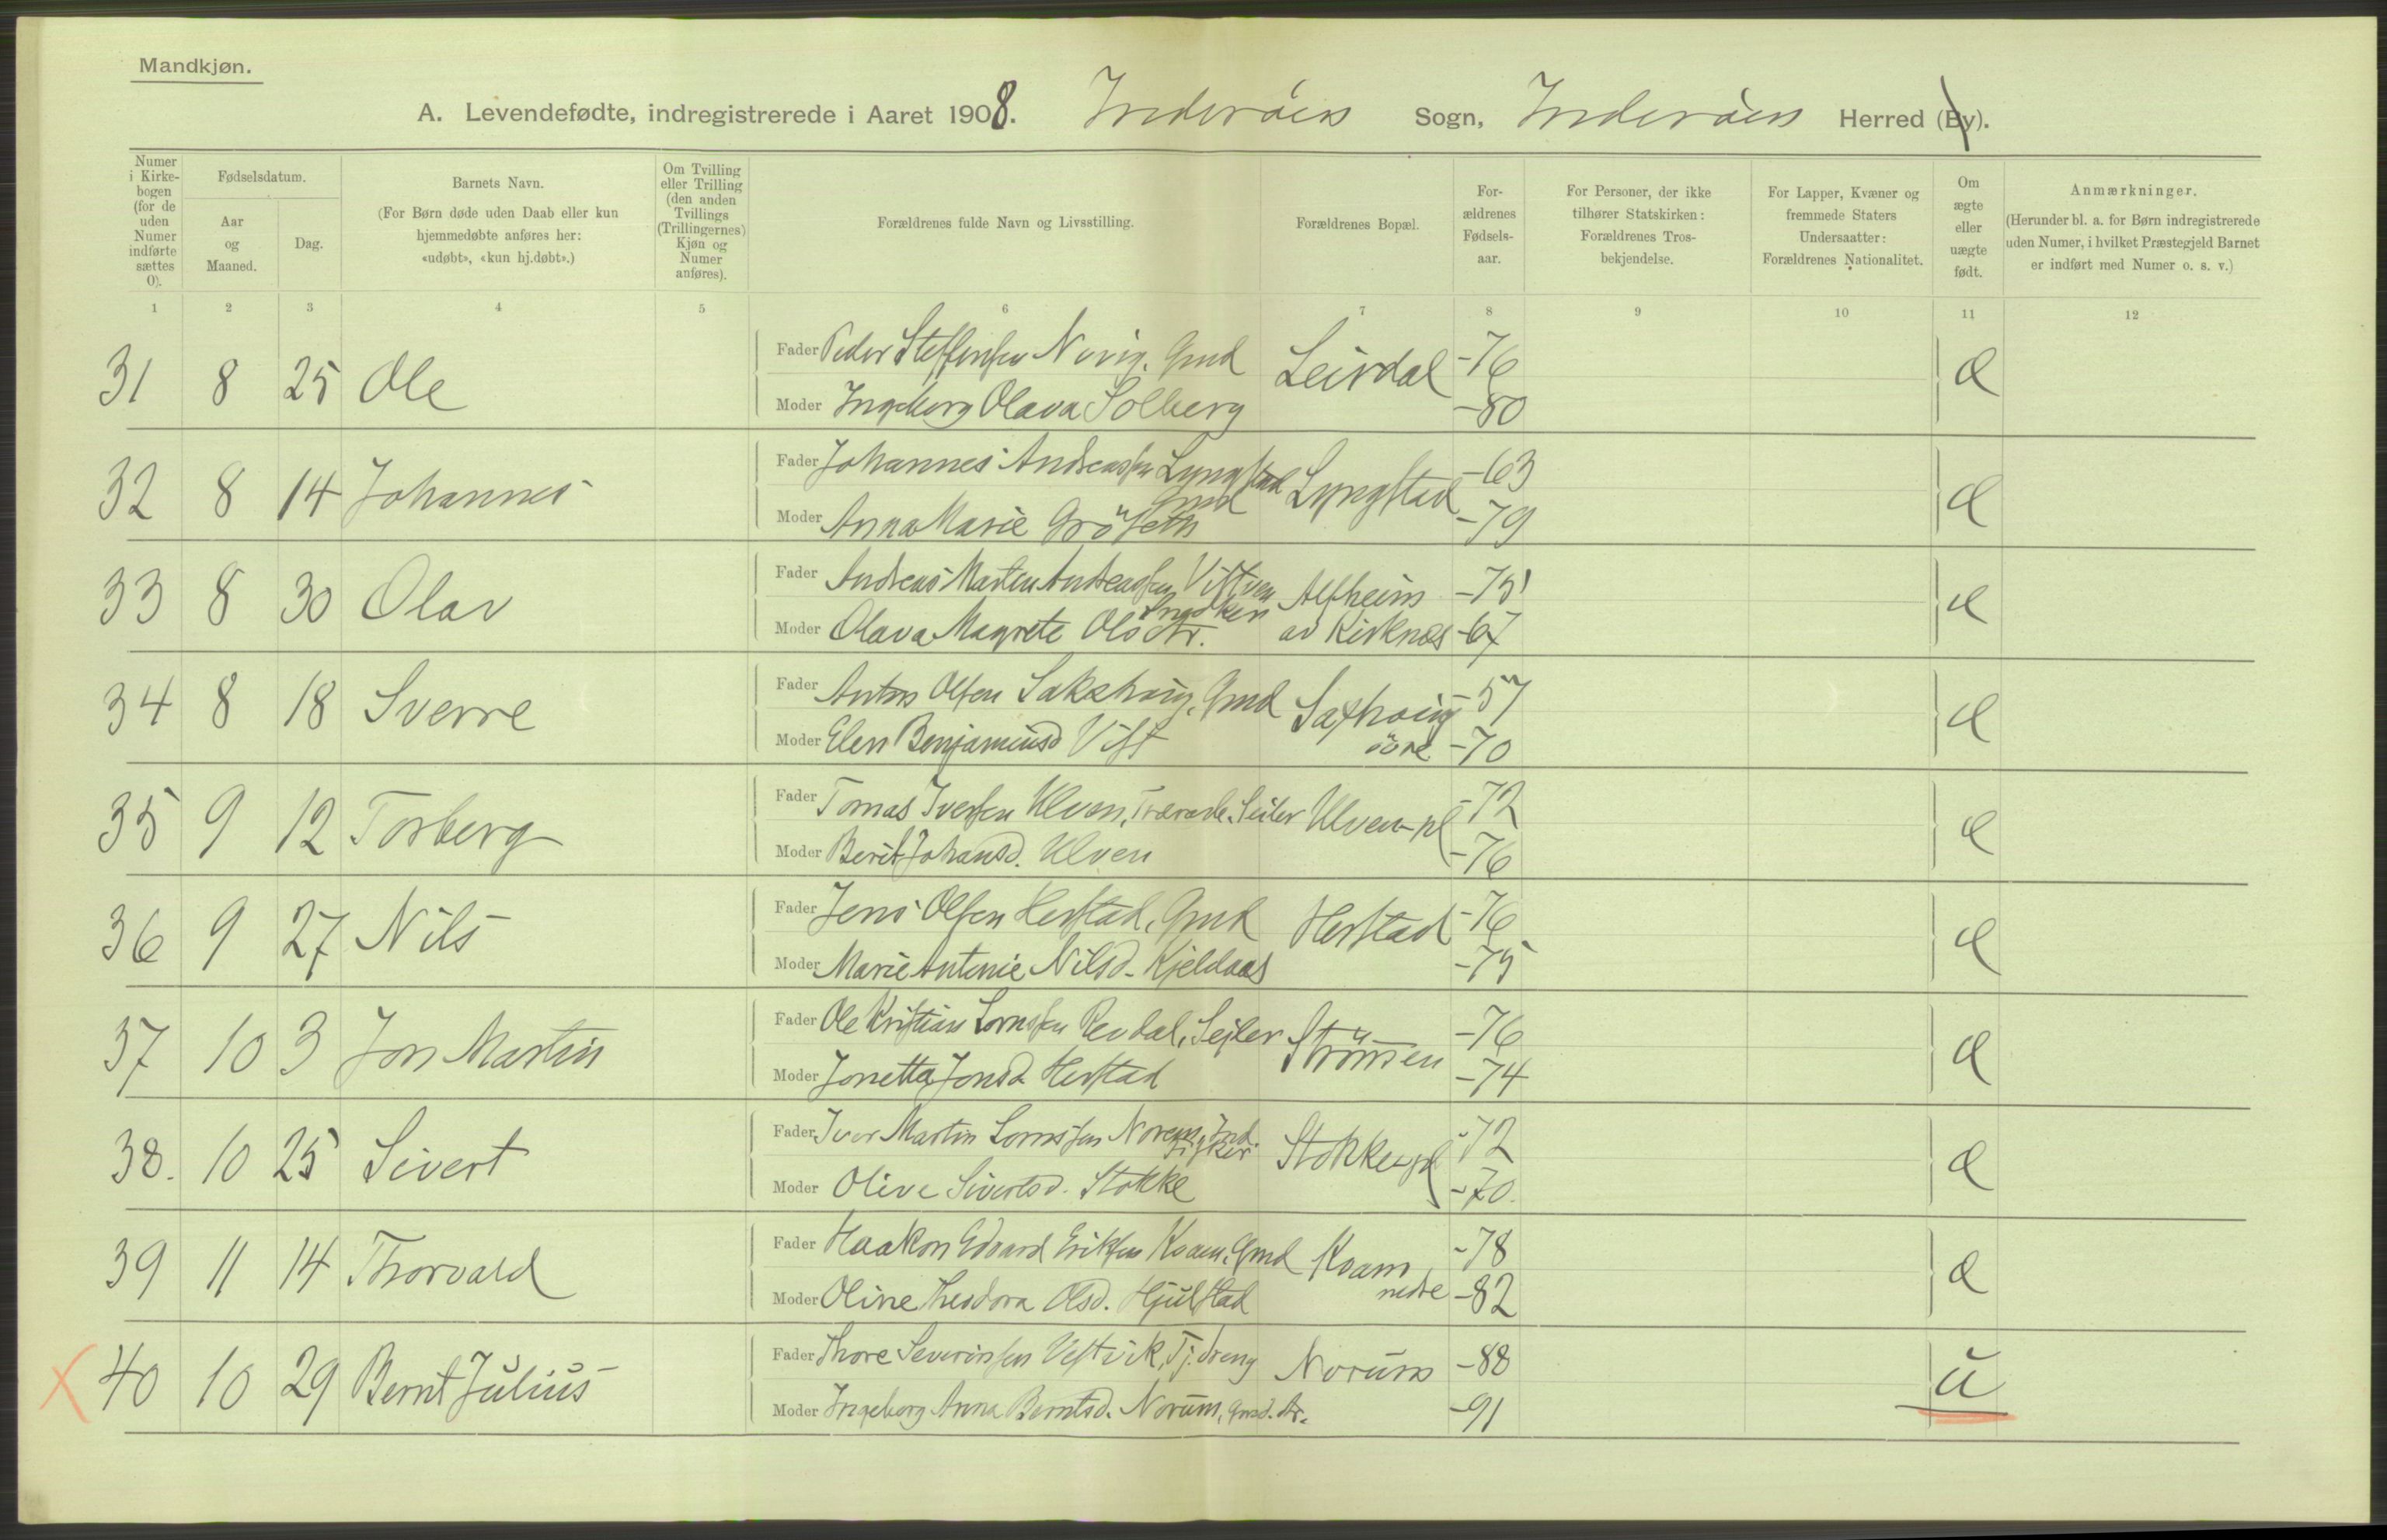 Mandkjøn.
A. Levendefødte, indregistrerede i Aaret 1908. Inderöen Sogn, Inderöen Herred (By).
Numer i Kirkebogen (for de uden Numer indførte sættes 0).
Fødselsdatum.
Aar og Maaned.
Dag.
Barnets Navn.
(For Børn døde uden Daab eller kun hjemmedøbte anføres her: «udøbt», «kun hj.døbt».)
Om Tvilling eller Trilling (den anden Tvillings (Trillingernes) Kjøn og Numer anføres).
Forældrenes fulde Navn og Livsstilling.
Forældrenes Bopæl.
Forældrenes Fødselsaar.
For Personer, der ikke tilhører Statskirken: Forældrenes Trosbekjendelse.
For Lapper, Kvæner og fremmede Staters Undersaatter: Forældrenes Nationalitet.
Om ægte eller uægte født.
Anmærkninger.
(Herunder bl. a. for Børn indregistrerede uden Numer, i hvilket Præstegjeld Barnet er indført med Numer o. s. v.)
1 2 3 4 5 6 7 8 9 10 11 12
31 8 25 Ole Fader Peder Steffensen Nervig, Gmd Leirdal -76 æ
Moder Ingeborg Olava Solberg -80
32 8 14 Johannes Fader Johannes Andreassen Lyngstad Gmd Lyngstad -63 æ
Moder Anna Marie Gröseth -79
33 8 30 Olav Fader Andreas Martin Andreassen Vistven Snedker Alfheim -75 æ
Moder Olava Magrete Olsdtr. av Kirknæs -67
34 8 18 Sverre Fader Anton Olsen Sakshaug, Gmd Saxhaug -57 æ
Moder Elen Benjaminsd Vist övre -70
35 9 12 Torberg Fader Tomas Iversen Ulven, Seiler Ulven pl -72 æ
Moder Berit Johansd. Ulven -76
36 9 27 Nils Fader Jens Olsen Herstad, Gmd Herstad -76 æ
Moder Marie Antonie Nilsd. Kjeldaas -75
37 10 3 Jon Martin Fader Ole Kristian Lornsen Reudal, Sejler Strömmen -76 æ
Moder Jonetta Jonsd Herstad -74
38. 10 25 Sivert Fader Iver Martin Lornsen Norem, Ind. Fisker Stokke pl -72 æ
Moder Olive Sivertsd. Stokke -70.
39 11 14 Thorvald Fader Haakon Edvard Eriksen Kvam, Gmd Kvam -78 æ
Moder Oline Theodora Olsd. Hjulstad nedre -82
X 40 10 29 Bernt Julius Fader Thore Severinsen Vestvik, Tj. dreng Norum -88 u
Moder Ingeborg Anna Berntsd. Norum, Gmd. dtr. -91